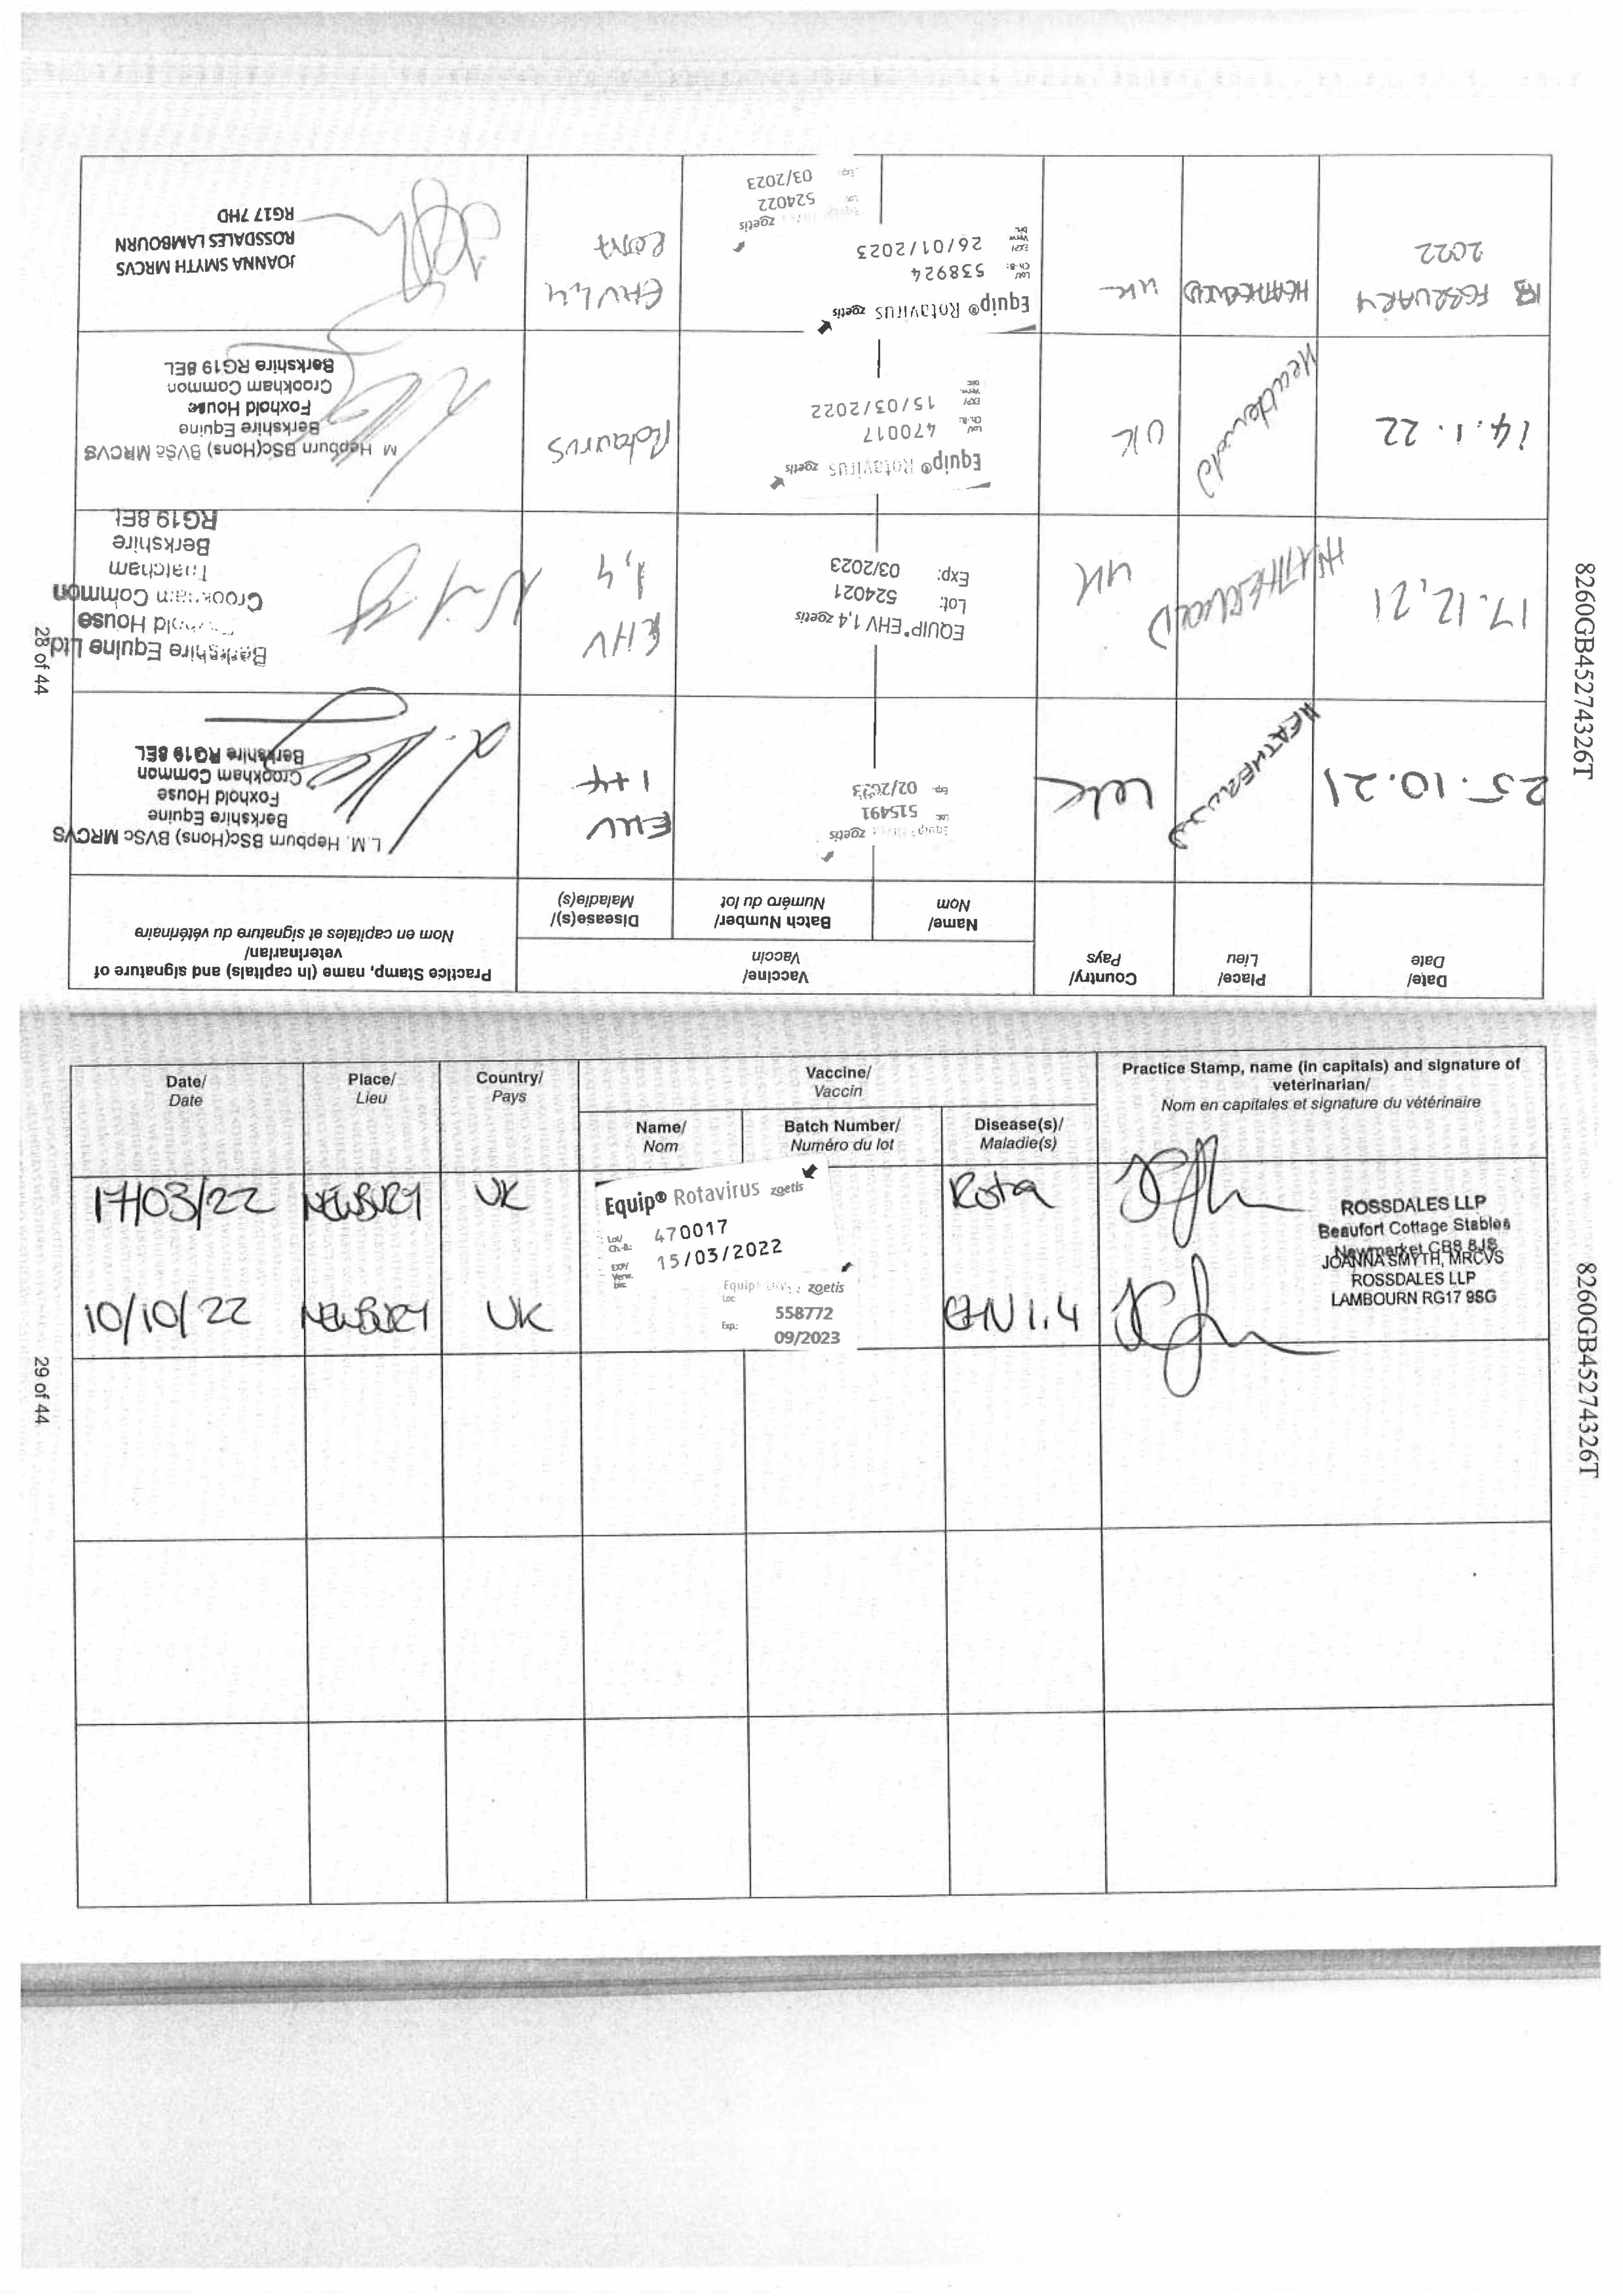 28 of 44
8260GB45274326T
Date/
Date
Place/
Lieu
Country/
Pays
Vaccine/
Vaccin
Name/
Nom
Batch Number/
Numéro du lot
Disease(s)/
Maladie(s)
Practice Stamp, name (in capitals) and signature of
veterinarian/
Nom en capitales et signature du vétérinaire
25.10.21
HEATHERWOLD
UK
zoetis
Lot: 515491
Exp: 02/2023
EHV
1+4
L.M. Hepburn BSC(Hons) BVSc MRCVS
Berkshire Equine
Foxhold House
Crookham Common
Berkshire RG19 8EL
17.12.21
HEATHERWOLD
UK
EQUIP® EHV 1,4 zoetis
Lot: 524021
Exp: 03/2023
EHV
1,4
Berkshire Equine Ltd
House
Crookham Common
Thatcham
Berkshire
RG19 8EL
14.1.22
Heatherwold
UK
Equip® Rotavirus zoetis
Lot/
Ch.-B.: 470017
EXP/
Verw. 15/03/2022
Rotavirus
M Hepburn BSC(Hons) BVSc MRCVS
Berkshire Equine
Foxhold House
Crookham Common
Berkshire RG19 8EL
FEBRUARY
2022
HEATHERWOLD
UK
Equip® Rotavirus zoetis
Lot/
Ch.-B.: 538924
EXP/
Verw. 26/01/2023
zoetis
Lot: 524022
Exp: 03/2023
EHV1,4
ROTA
JOANNA SMYTH MRCVS
ROSSDALES LAMBOURN
RG17 7HD
29 of 44
8260GB45274326T
Date/
Date
Place/
Lieu
Country/
Pays
Vaccine/
Vaccin
Name/
Nom
Batch Number/
Numéro du lot
Disease(s)/
Maladie(s)
Practice Stamp, name (in capitals) and signature of
veterinarian/
Nom en capitales et signature du vétérinaire
17/03/22
NEWBURY
UK
Equip® Rotavirus zoetis
Lot/
Ch.-B.: 470017
EXP/
Verw.
bis: 15/03/2022
Rota
ROSSDALES LLP
Beaufort Cottage Stables
Newmarket CB8 8JS
10/10/22
NEWBURY
UK
Equip zoetis
Lot: 558772
Exp.: 09/2023
EHV1.4
JOANNA SMYTH, MRCVS
ROSSDALES LLP
LAMBOURN RG17 9SG